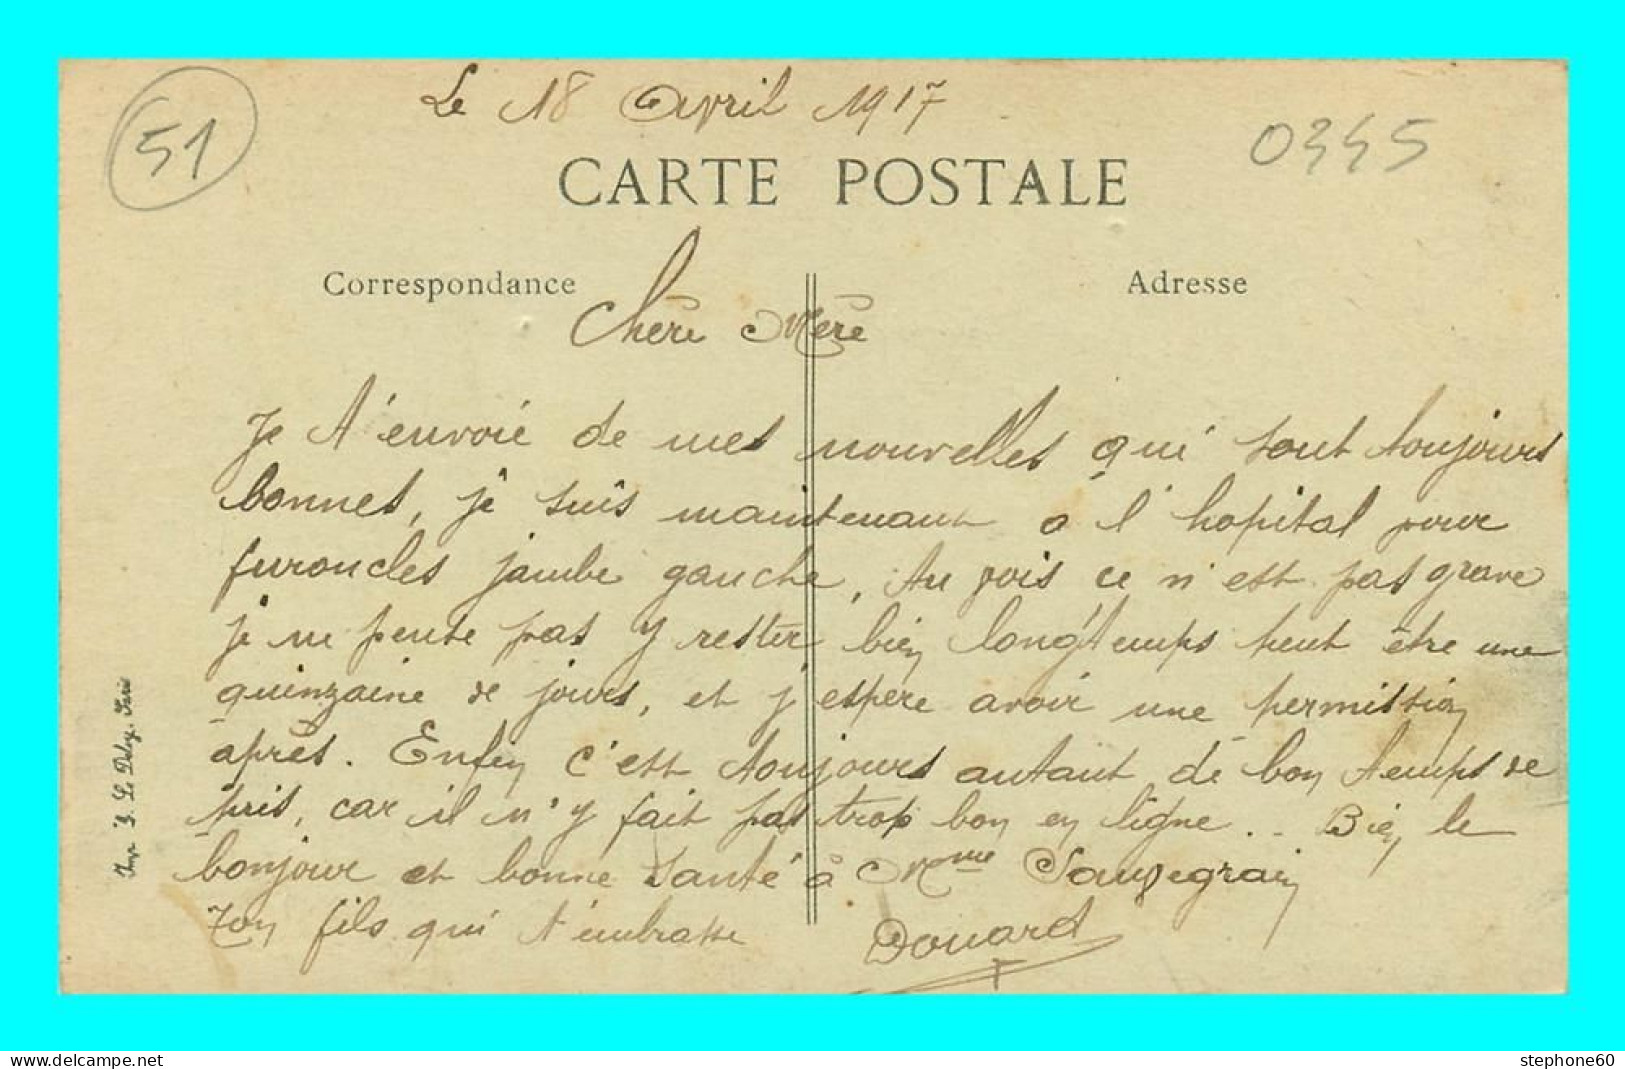 Le 18 Avril 1917
51
0345
CARTE POSTALE
Correspondance
Adresse
Chère Mère
Je t'envoie de mes nouvelles qui sont toujours
bonnes, je suis maintenant a l'hopital pour
furoncles jambe gauche, tu vois ce n'est pas grave
je ne pense pas y rester bien longtemps peut être une
quinzaine de jours, et j'espère avoir une permission
après. Enfin c'est toujours autant de bon temps de
pris, car il n'y fait pas trop bon en ligne.. Bien le
bonjour et bonne santé à Mme Sauvegrain
Ton fils qui t'embrasse
Douard
Imp. J. Le Deley, Paris
stephone60